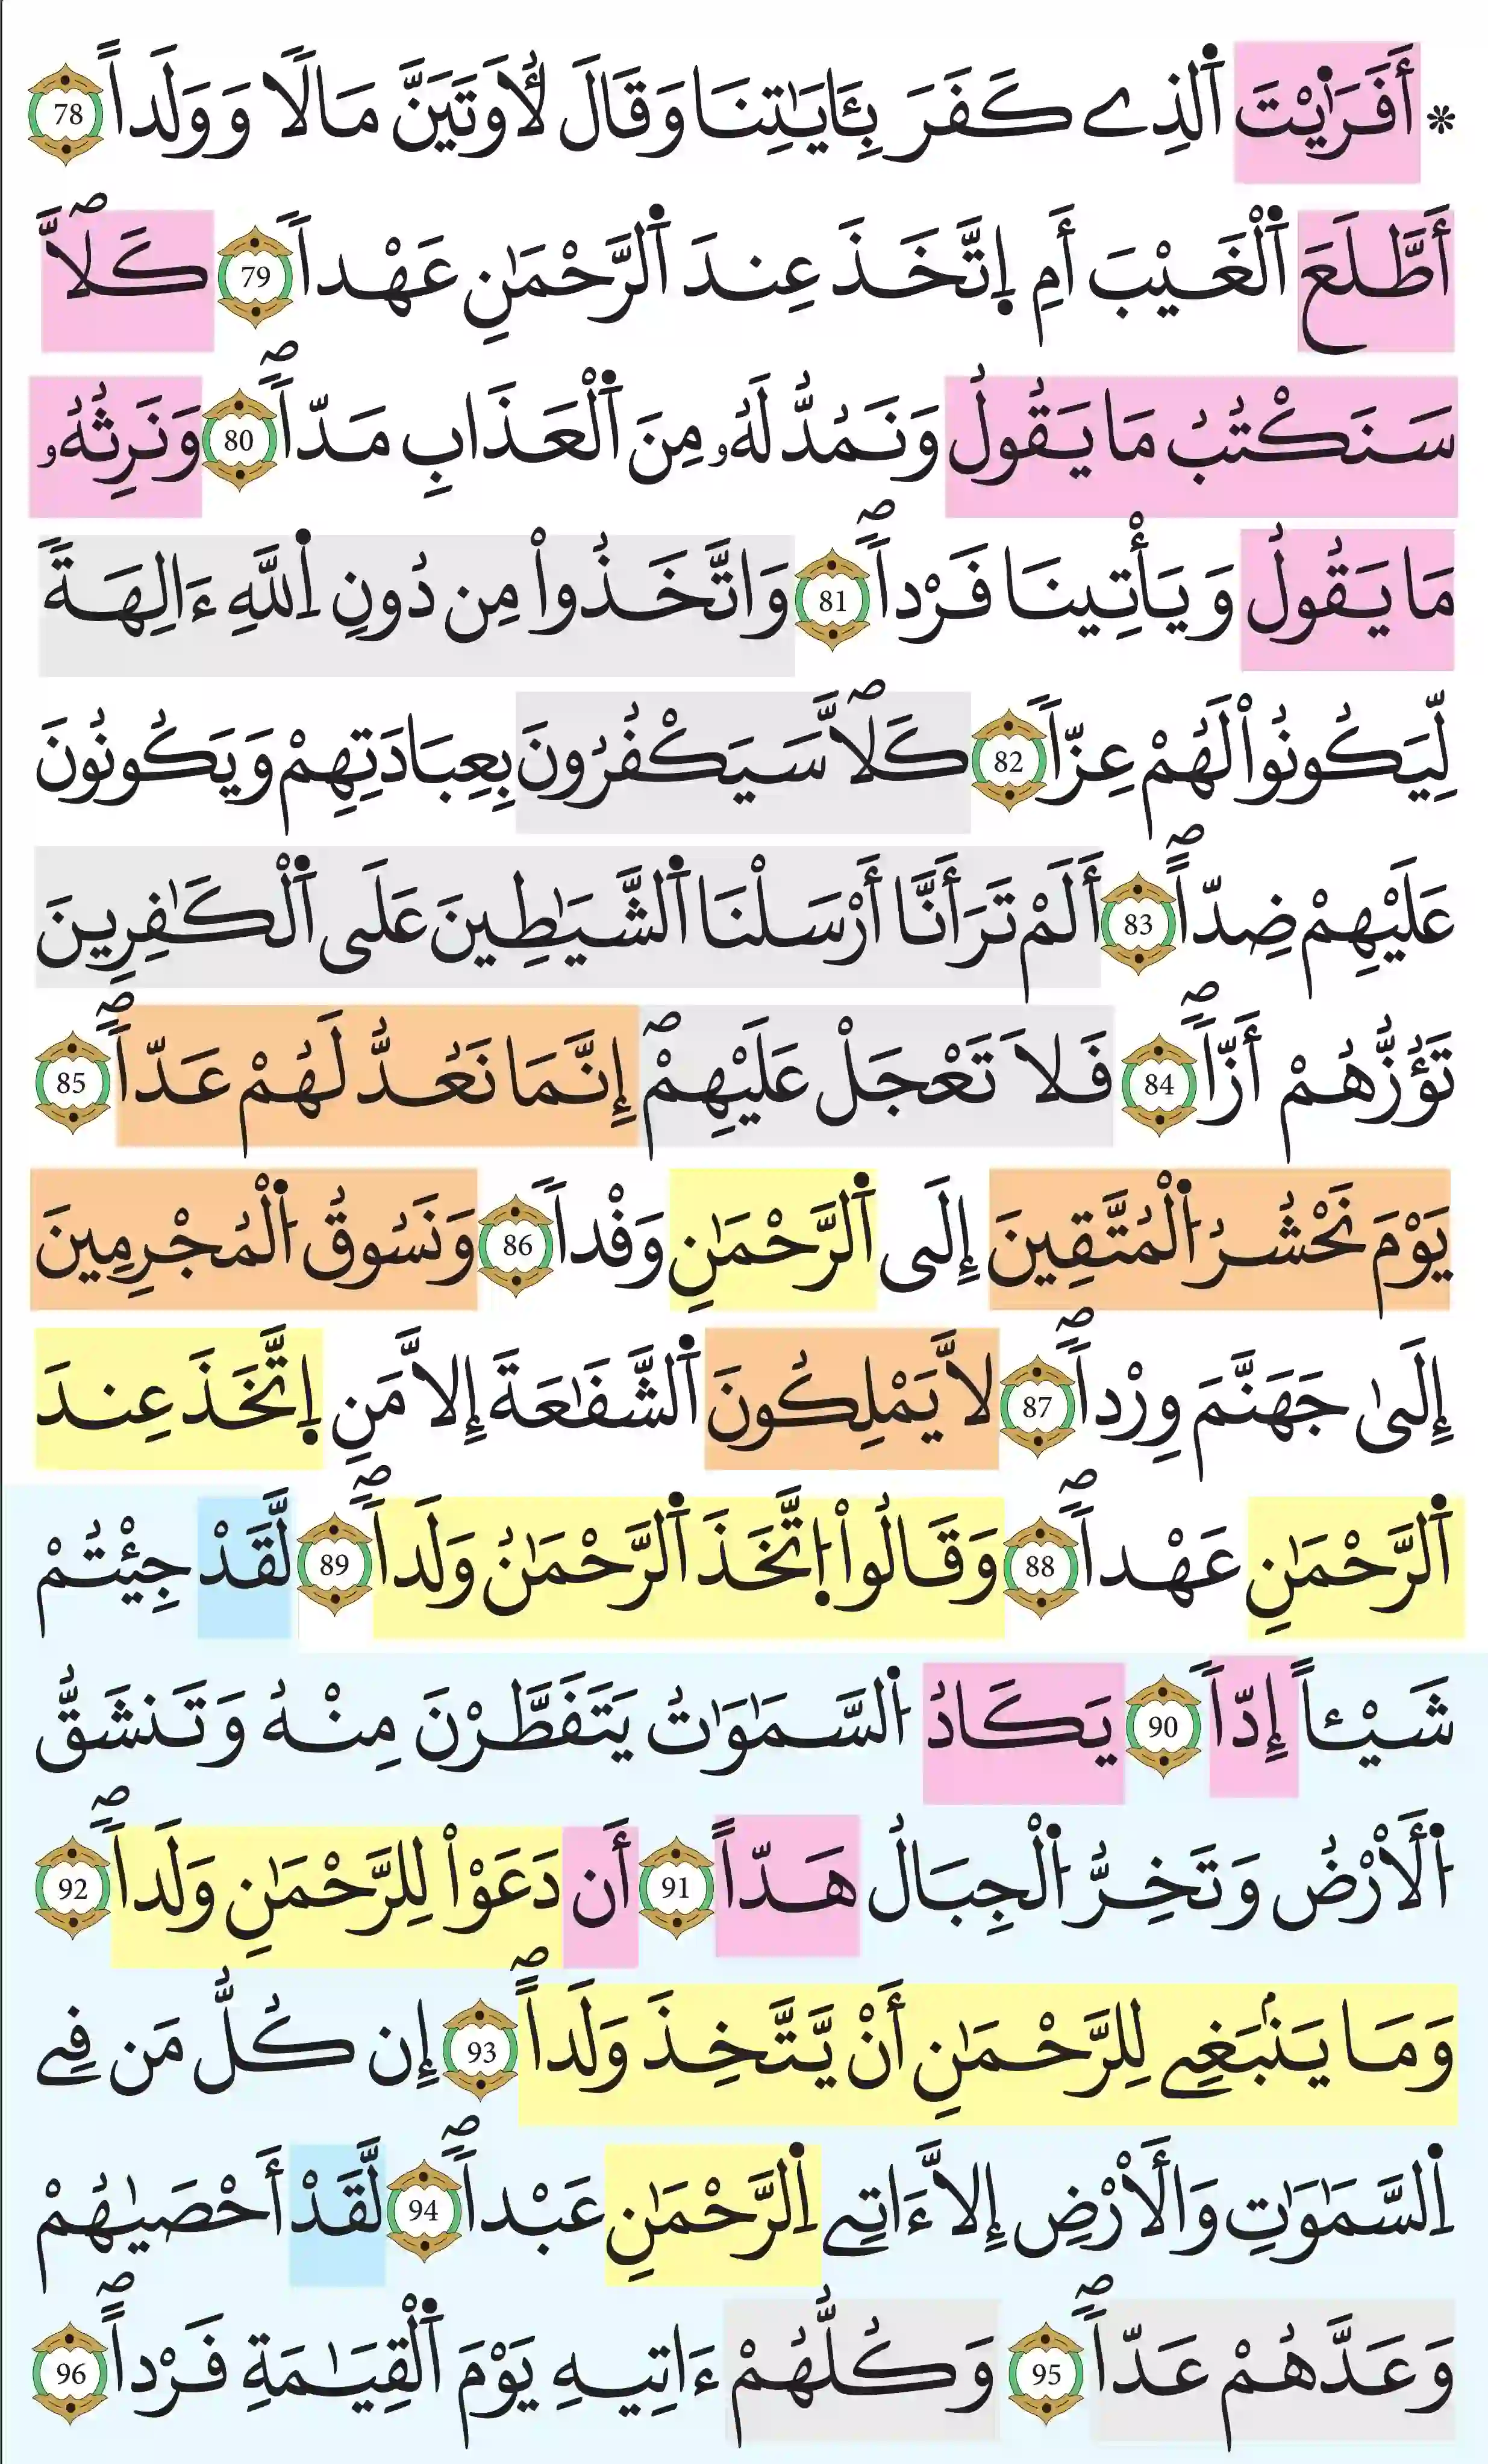 * أَفَرَٰيْتَ اَ۬لذِے كَفَرَ بِـَٔايَٰتِنَا وَقَالَ لُأوتَيَنَّ مَالًا وَوَلَداً 78
أَطَّلَعَ اَ۬لْغَيْبَ أَمِ اِ۪تَّخَذَ عِندَ اَ۬لرَّحْمَٰنِ عَهْداً 79 كَلَّاۖ
سَنَكْتُبُ مَا يَقُولُ وَنَمُدُّ لَهُۥ مِنَ اَ۬لْعَذَابِ مَدّاًۖ 80 وَنَرِثُهُۥ
مَا يَقُولُ وَيَأْتِينَا فَرْداًۖ 81 وَاتَّخَذُواْ مِن دُونِ اِ۬للَّهِ ءَالِهَةً
لِّيَكُونُواْ لَهُمْ عِزّاً 82 كَلَّاۖ سَيَكْفُرُونَ بِعِبَادَتِهِمْ وَيَكُونُونَ
عَلَيْهِمْ ضِدّاًۖ 83 أَلَمْ تَرَ أَنَّا أَرْسَلْنَا اَ۬لشَّيَٰطِينَ عَلَى اَ۬لْكَٰفِرِينَ
تَؤُزُّهُمْ أَزّاًۖ 84 فَلَا تَعْجَلْ عَلَيْهِمْۖ إِنَّمَا نَعُدُّ لَهُمْ عَدّاًۖ 85
يَوْمَ نَحْشُرُ اُ۬لْمُتَّقِينَ إِلَى اَ۬لرَّحْمَٰنِ وَفْداً 86 وَنَسُوقُ اُ۬لْمُجْرِمِينَ
إِلَىٰ جَهَنَّمَ وِرْداًۖ 87 لَّا يَمْلِكُونَ اَ۬لشَّفَٰعَةَ إِلَّا مَنِ اِ۪تَّخَذَ عِندَ
اَ۬لرَّحْمَٰنِ عَهْداًۖ 88 وَقَالُواْ اُ۪تَّخَذَ اَ۬لرَّحْمَٰنُ وَلَداًۖ 89 لَّقَدْ جِئْتُمْ
شَيْـٔاً إِدّاً 90 يَكَادُ اُ۬لسَّمَٰوَٰتُ يَتَفَطَّرْنَ مِنْهُ وَتَنشَقُّ
اُ۬لْأَرْضُ وَتَخِرُّ اُ۬لْجِبَالُ هَدّاً 91 أَن دَعَوْاْ لِلرَّحْمَٰنِ وَلَداًۖ 92
وَمَا يَنۢبَغِے لِلرَّحْمَٰنِ أَنْ يَّتَّخِذَ وَلَداًۖ 93 إِن كُلُّ مَن فِے
اِ۬لسَّمَٰوَٰتِ وَالْأَرْضِ إِلَّا ءَاتِے اِ۬لرَّحْمَٰنِ عَبْداًۖ 94 لَّقَدْ أَحْصَيٰهُمْ
وَعَدَّهُمْ عَدّاًۖ 95 وَكُلُّهُمْ ءَاتِيهِ يَوْمَ اَ۬لْقِيَٰمَةِ فَرْداًۖ 96